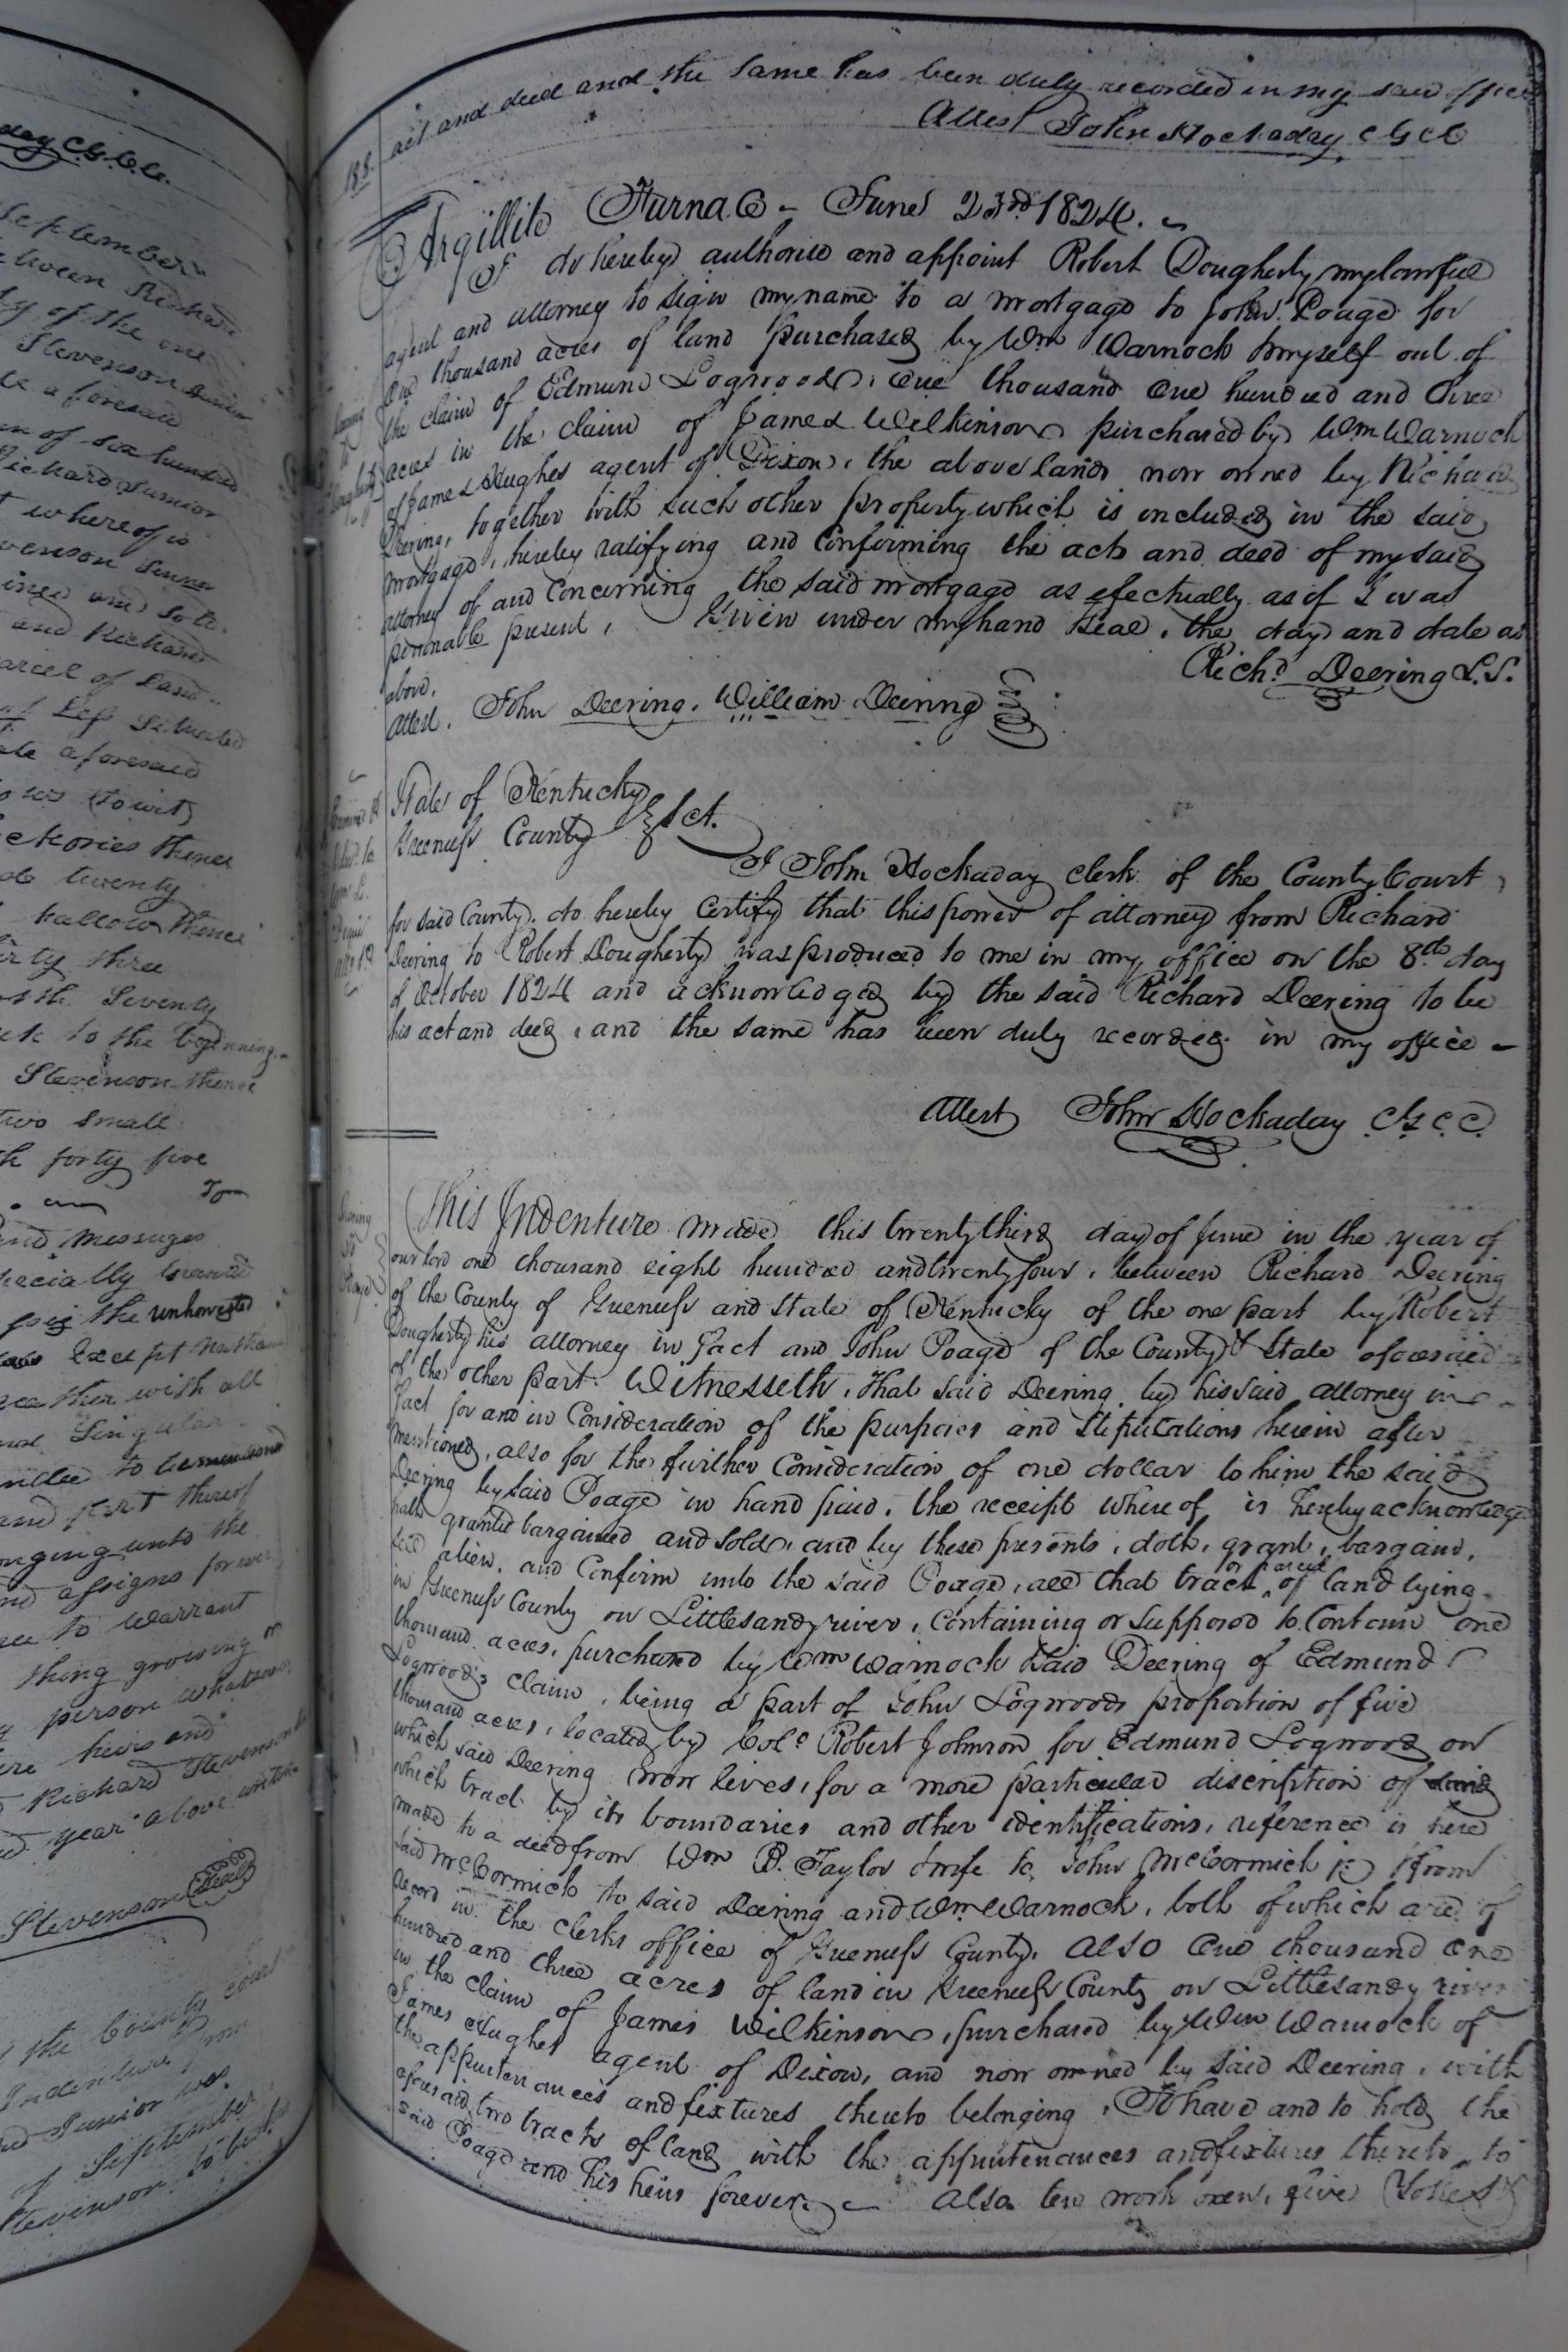 day C.G.C.C.
September
Richard
ly of the one
Stevenson Senior
aforesaid
of six hundred
Richard Junior
whereof is
Stevenson Senior
and Richard
parcel of Land
Situated
aforesaid
(towit)
thence
twenty
hallow thence
three
Seventy
to the beginning
Stevenson thence
two small
forty five
To
and Messuges
specially
the unhovested
Except
with all
Singular
and part thereof
unto the
and assigns forever
to Warrant
thing growing or
person whatsoever
heirs and
Richard Stevenson
year above written
Stevenson Seal
the County Court
Indenture from
Junior was
of September
Stevenson to be
188.
act and deed and the same has been duly recorded in my said office
Attest John Hockaday C G C C
Argillite Furnace - June 23rd 1824.
I do hereby authorise and appoint Robert Dougherty my lawful
agent and attorney to sign my name to a mortgage to John Poage for
One thousand acres of land purchased by Wm Warnock & myself out of
the claim of Edmund Logwood, One thousand One hundred and three
acres in the claim of James Wilkinson purchased by Wm Warnock
of James Hughes agent of Dixon, the above lands now owned by Richard
Deering, together with such other property which is included in the said
mortgage, hereby ratifying and Confirming the acts and deed of my said
attorney of and Concerning the said mortgage as efectually as if I was
personable present, Given under my hand & Seal, the day and date as
above. Richd Deering L.S.
Attest. John Deering. William Deering
State of Kentucky
Greenup County Sct.
I John Hockaday clerk of the County Court
for said County, do hereby Certify that this power of attorney from Richard
Deering to Robert Dougherty was produced to me in my office on the 8th day
of October 1824 and acknowledged by the said Richard Deering to be
his act and deed, and the same has been duly recorded in my office -
Attest John Hockaday C G C C
Deering
To
Poage
This Indenture made this twenty third day of June in the year of
our lord one thousand eight hundred and twenty four, between Richard Deering
of the County of Greenup and State of Kentucky of the one part by Robert
Dougherty his attorney in fact and John Poage of the County & State aforesaid
of the other part. Witnesseth, that said Deering by his said attorney in
fact for and in Consideration of the purposes and Stipulations herein after
mentioned, also for the further Consideration of one dollar to him the said
Deering by said Poage in hand paid, the receipt whereof is hereby acknowledged
hath granted bargained and sold, and by these presents, doth, grant, bargain,
sell alien, and Confirm unto the said Poage, all that tract or parcel of land lying
in Greenup County on Little sandy river, Containing or supposed to Contain one
thousand acres, purchased by Wm Warnock & said Deering of Edmund
Logwood's claim, being a part of John Logwoods proportion of five
thousand acres, located by Colo Robert Johnson for Edmund Logwood on
which said Deering now lives, for a more particular discription of said
which tract by its boundaries and other identifications, reference is here
made to a deed from Wm P. Taylor & wife to John McCormick jr & from
said McCormick to said Deering and Wm Warnock, both of which are of
record in the clerks office of Greenup County. Also One thousand one
hundred and three acres of land in Greenup County on Little sandy river
in the claim of James Wilkinson, purchased by Wm Warnock of
James Hughes agent of Dixon, and now owned by said Deering, with
the appurtenances and fixtures thereto belonging, To have and to hold the
aforesaid two tracts of land with the appurtenances and fixtures thereto, to
said Poage and his heirs forever. Also ten work oxen, five Yokes &